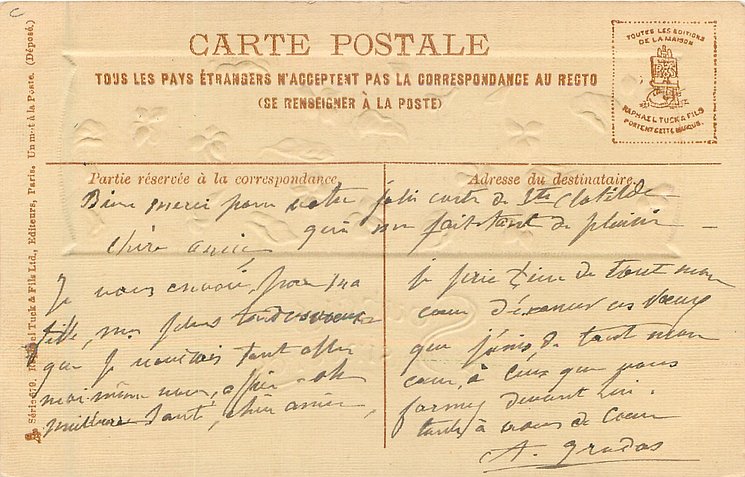 CARTE POSTALE
TOUS LES PAYS ÉTRANGERS N'ACCEPTENT PAS LA CORRESPONDANCE AU RECTO
(SE RENSEIGNER À LA POSTE)
TOUTES LES EDITIONS
DE LA MAISON
RAPHAEL TUCK & FILS
PORTENT CETTE MARQUE.
Série 679. Raphael Tuck & Fils Ltd., Editeurs, Paris. Un mot à la Poste. (Déposé.)
Partie réservée à la correspondance.
Adresse du destinataire.
Bien merci pour votre jolie carte de Ste Clotilde
qui me fait tant de plaisir
chère amie
Je vous envoie, pour
fête, mes plus tendres vœux
que je voudrais tant aller
moi-même vous offrir
meilleure santé, chère amie,
je prie Dieu de tout mon
cœur d'exaucer ces vœux
que je joins de tout mon
cœur, à ceux que vous
formez devant Lui.
toute à vous de cœur
A. Gradas